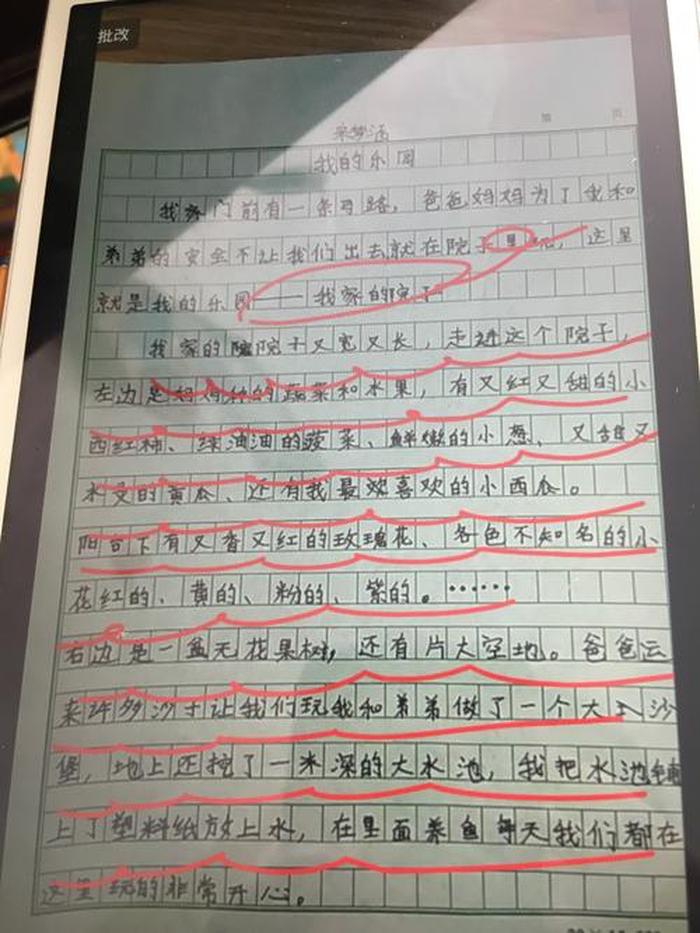 批改
第 页
梦涵
我的乐园
我家门前有一条马路，爸爸妈妈为了我和
弟弟的安全不让我们出去就在院子里玩，这里
就是我的乐园——我家的院子
我家的院院子又宽又长，走进这个院子，
左边是妈妈种的蔬菜和水果，有又红又甜的小
西红柿、绿油油的菠菜、鲜嫩的小葱、又甜又
水灵的黄瓜、还有我最欢喜欢的小西瓜。
阳台下有又香又红的玫瑰花、各色不知名的小
花红的、黄的、粉的、紫的。……
右边是一盆无花果树，还有片大空地。爸爸运
来许多沙子让我们玩我和弟弟做了一个大大沙
堡，地上还挖了一米深的大水池，我把水池铺
上了塑料纸放上水，在里面养鱼每天我们都在
这里玩的非常开心。